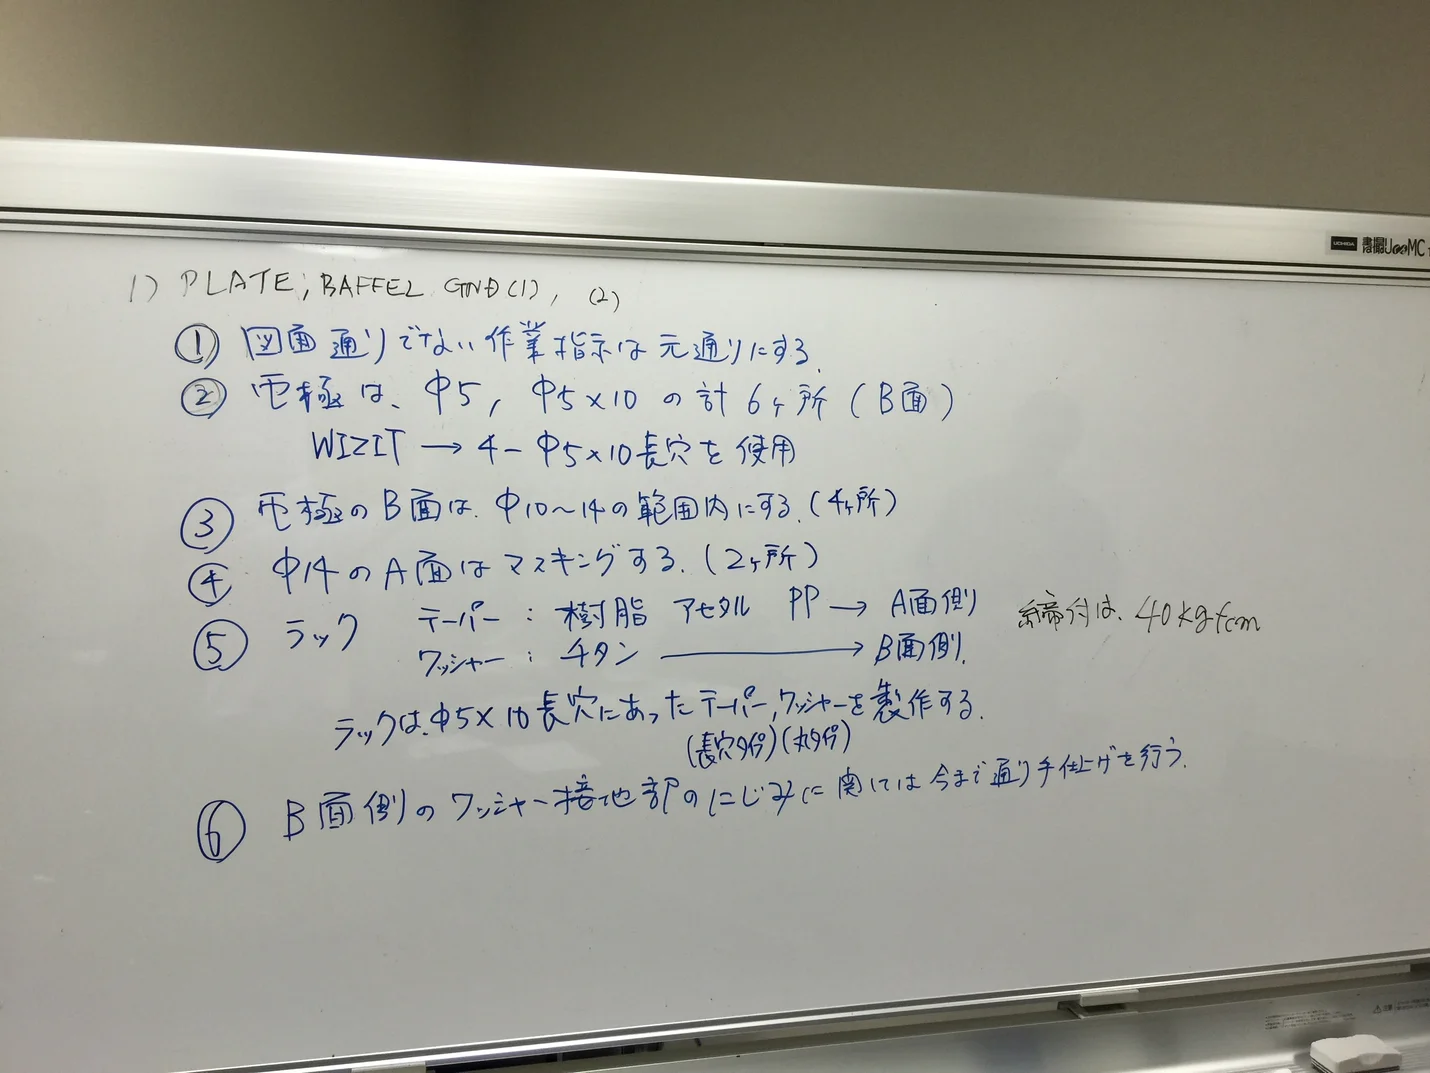 UCHIDA 書撮UcoMC
1) PLATE; BAFFEL GND(1), (2)
① 図面通りでない作業指示は元通りにする.
② 電極は、φ5, φ5×10 の計 6ヶ所 (B面)
WIZIT → 4-φ5×10長穴を使用
③ 電極のB面は、φ10〜14の範囲内にする. (4ヶ所)
④ φ14のA面はマスキングする. (2ヶ所)
⑤ ラック テーパー : 樹脂 アセタル PP → A面側 締付は、40kgfcm
ワッシャー : チタン → B面側.
ラックは、φ5×10長穴にあったテーパー, ワッシャーを製作する.
(長穴タイプ) (丸タイプ)
⑥ B面側のワッシャー接地部のにじみに関しては今まで通り手仕上げを行う.